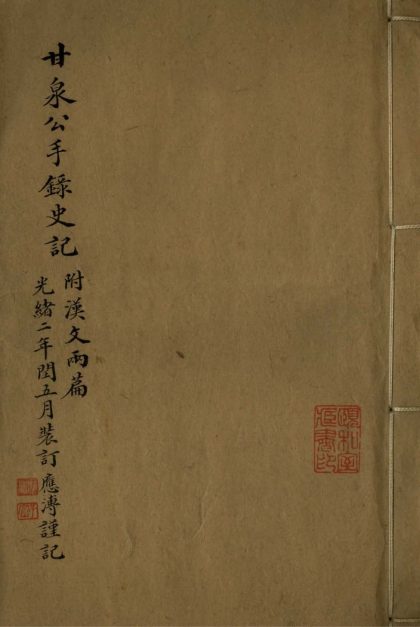 甘泉公手錄史記
附漢文兩篇
光緒二年閏五月裝訂應溥謹記
頤和室
臣書印